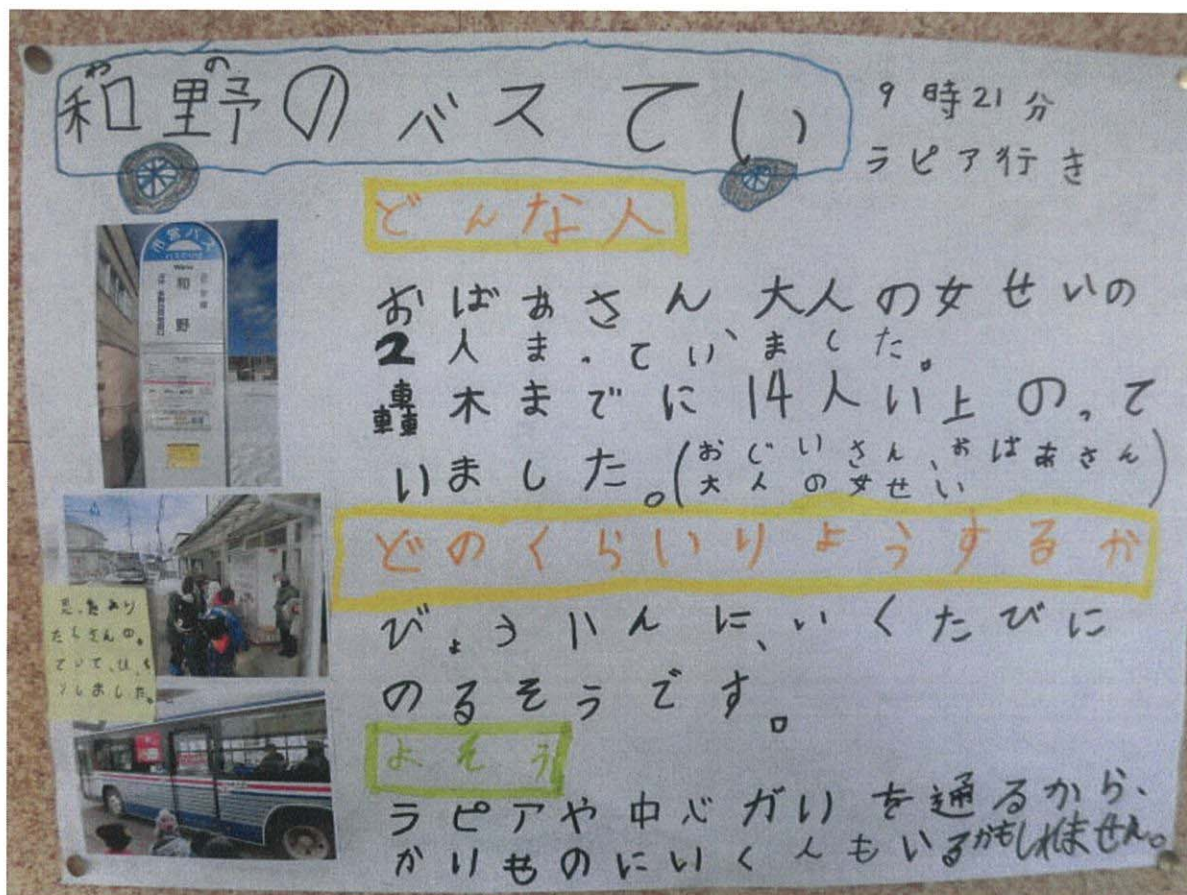 和野のバスてい
わ の
9時21分
ラピア行き
どんな人
おばあさん 大人の女せいの
2人まっていました。
轟木までに14人い上のって
いました。(おじいさん、おばあさん
大人の女せい)
どのくらいりようするか
びょういんに、いくたびに
のるそうです。
よそう
ラピアや中心がいを通るから、
かいものにいく人もいるかもしれません。
市営バス
Wano
和野
たくさんの
ていて、
りしました。